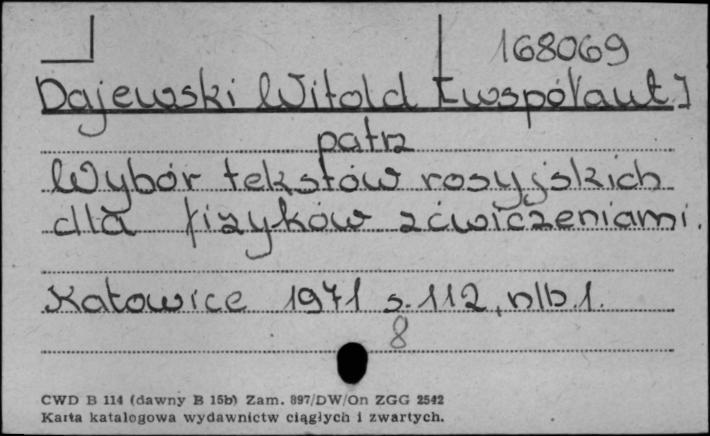 168069
Dajewski Witold [współaut.]
patrz
Wybór tekstów rosyjskich
dla fizyków z ćwiczeniami.
Katowice 1971 s. 112, nlb. 1.
8
CWD B 114 (dawny B 15b) Zam. 897/DW/On ZGG 2542
Karta katalogowa wydawnictw ciągłych i zwartych.